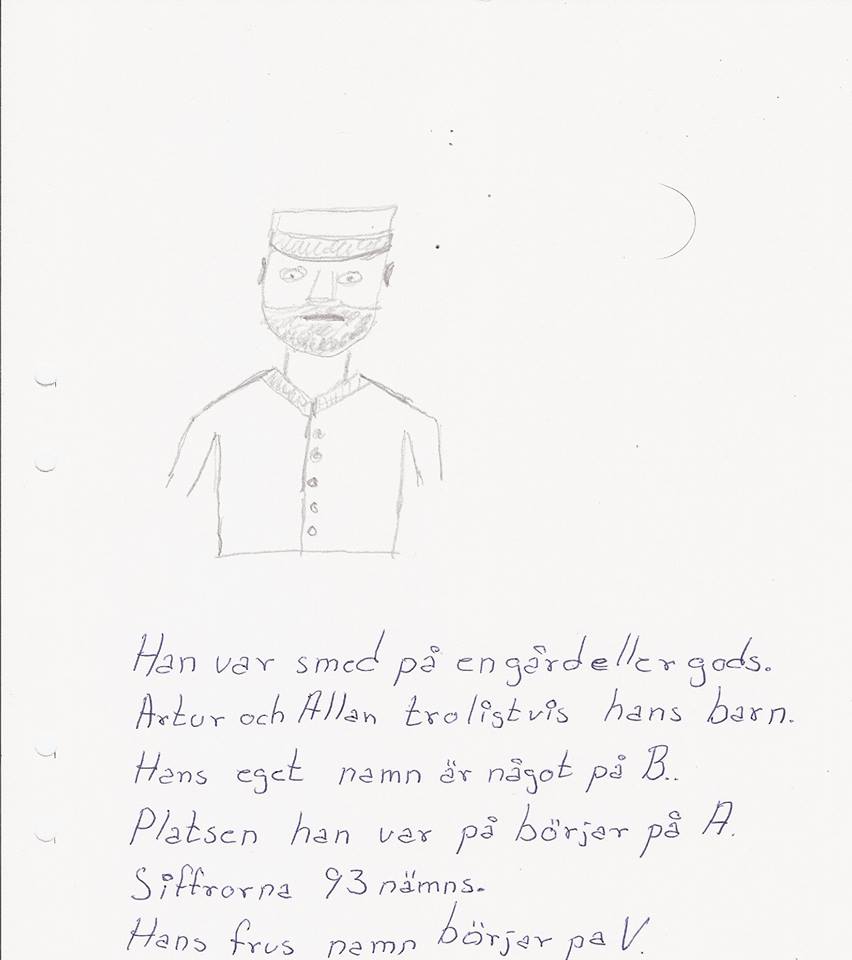 Han var smed på en gård eller gods.
Artur och Allan troligtvis hans barn.
Hans eget namn är något på B..
Platsen han var på börjar på A.
Siffrorna 93 nämns.
Hans frus namn börjar pa V.